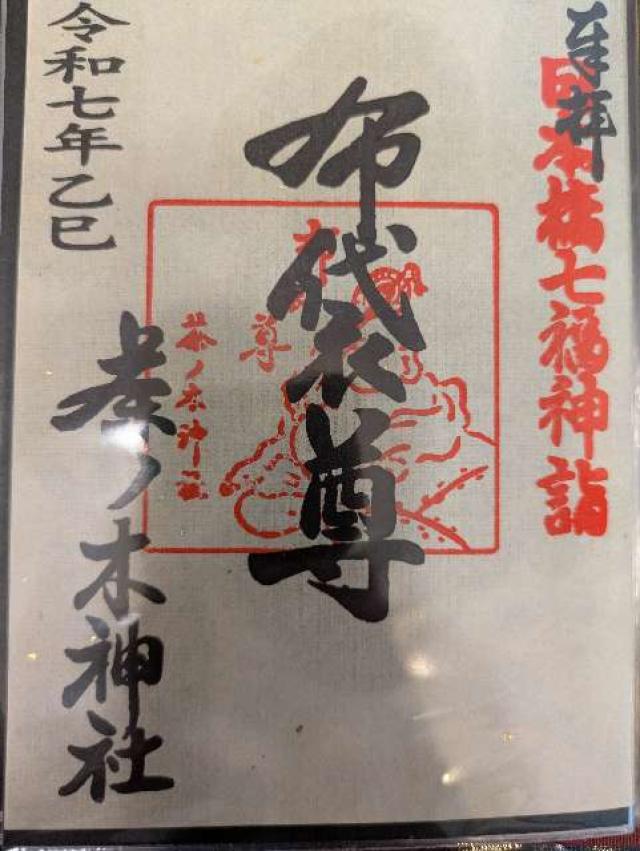 奉拝
日本橋七福神詣
布袋尊
布袋尊
茶ノ木神社
茶ノ木神社
令和七年乙巳